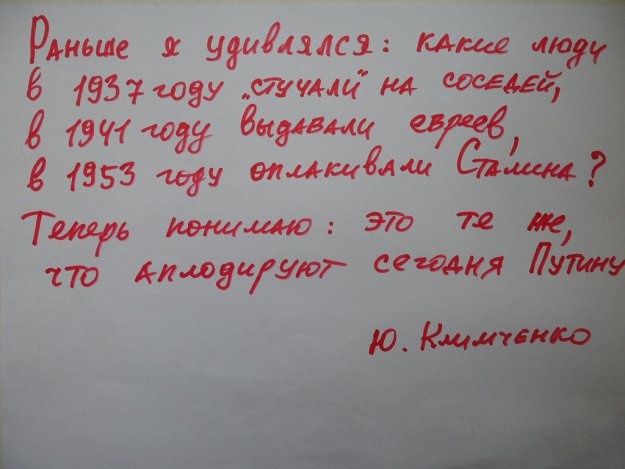 Раньше я удивлялся: какие люди
в 1937 году „стучали" на соседей,
в 1941 году выдавали евреев,
в 1953 году оплакивали Сталина?
Теперь понимаю: это те же,
что аплодируют сегодня Путину
Ю. Климченко